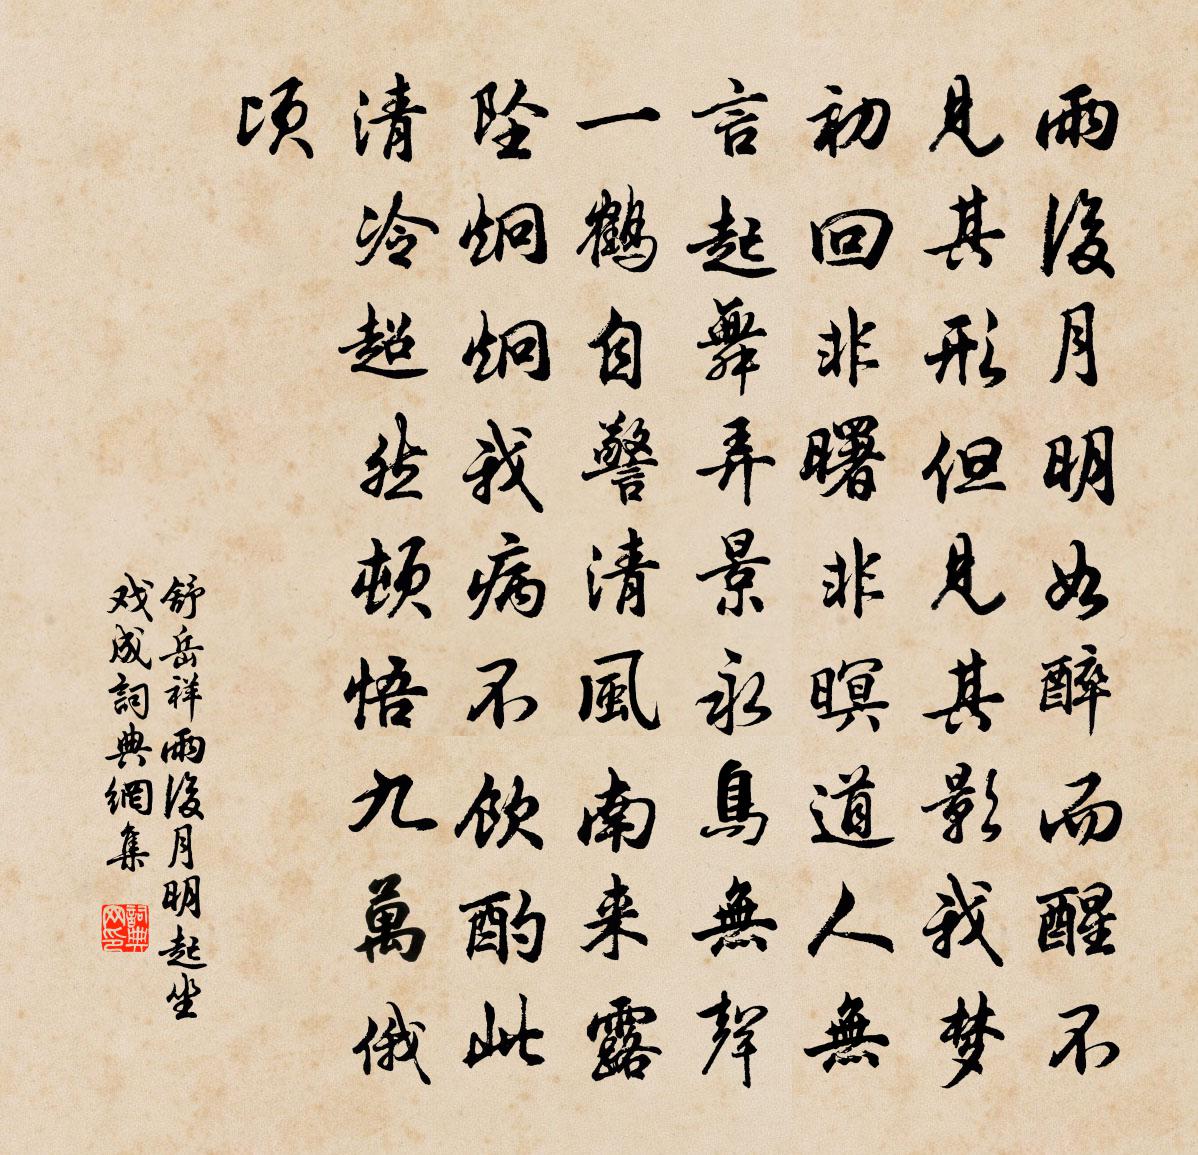 雨後月明如醉而醒不
見其形但見其影我梦
初回非曙非暝道人無
言起舞弄景永鳥無聲
一鶴自警清風南来露
坠炯炯我病不飲酌此
清冷超然頓悟九萬俄
頃
舒岳祥雨後月明起坐
戏成詞典網集
詞典网印